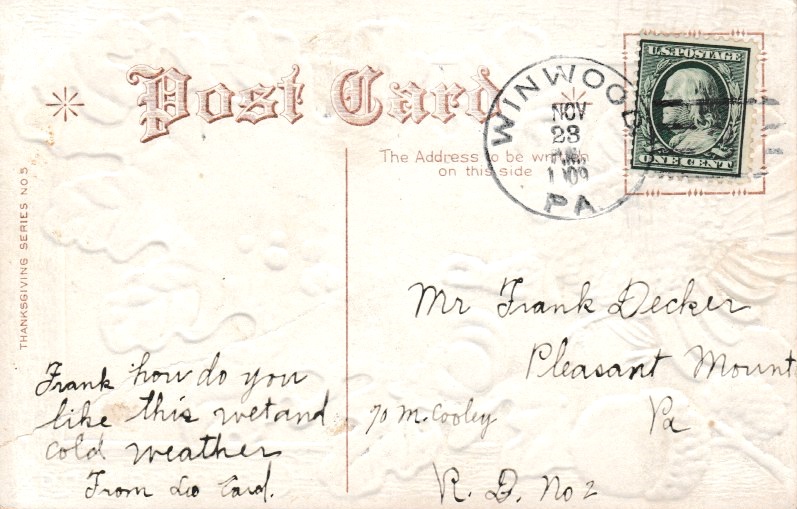 Post Card
U.S. POSTAGE
ONE CENT
WINWOOD
NOV
23
1909
PA.
The Address to be written
on this side
THANKSGIVING SERIES NO 5
Mr Frank Decker
Pleasant Mount
Pa
c/o M. Cooley
R. D. No 2
Frank how do you
like this wet and
cold weather
From Leo Card.